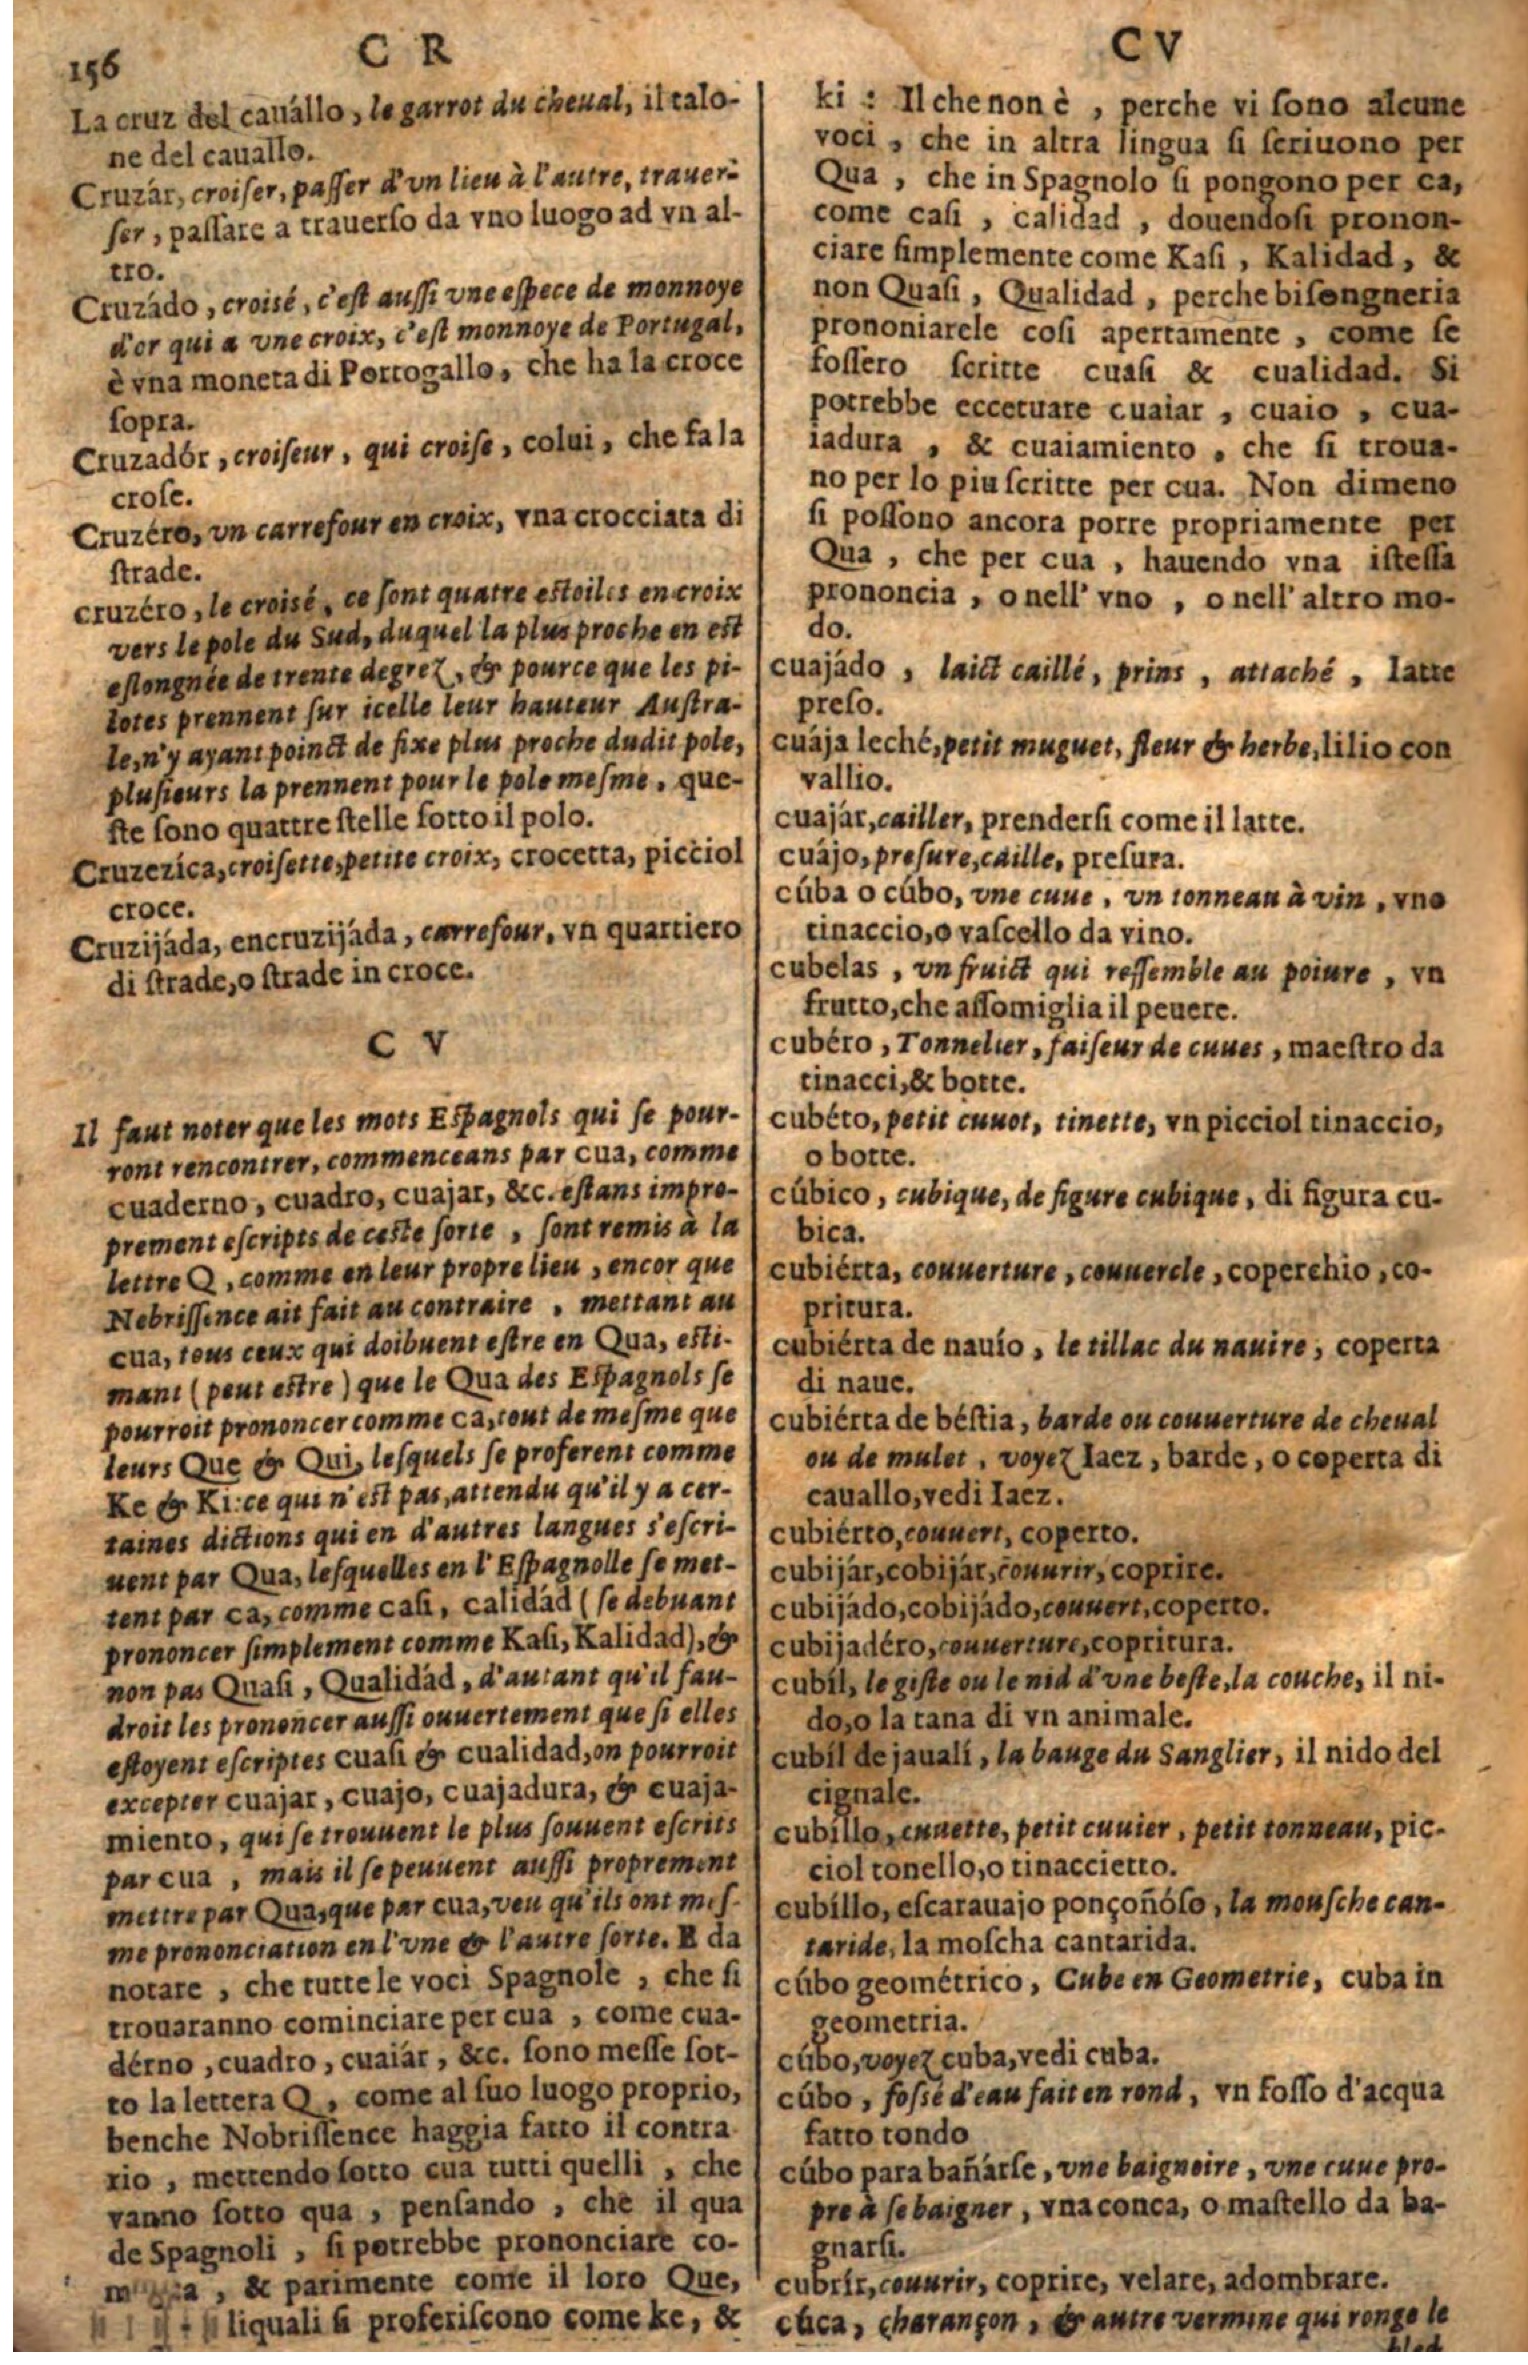 156
C R
La cruz del cauállo, le garrot du cheual, il talo-
ne del cauallo.
Cruzár, croiſer, paſſer d'vn lieu à l'autre, trauer-
ſer, paſſare a trauerſo da vno luogo ad vn al-
tro.
Cruzádo, croiſé, c'eſt auſſi vne eſpece de monnoye
d'or qui a vne croix, c'eſt monnoye de Portugal,
è vna moneta di Portogallo, che ha la croce
ſopra.
Cruzadór, croiſeur, qui croiſe, colui, che fa la
croſe.
Cruzéro, vn carrefour en croix, vna crocciata di
ſtrade.
cruzéro, le croisé, ce ſont quatre eſtoiles en croix
vers le pole du Sud, duquel la plus proche en eſt
eſlongnée de trente degrez, & pource que les pi-
lotes prennent ſur icelle leur hauteur Auſtra-
le, n'y ayant poinct de fixe plus proche dudit pole,
pluſieurs la prennent pour le pole meſme, que-
ſte ſono quattre ſtelle ſotto il polo.
Cruzezíca, croiſette, petite croix, crocetta, picciol
croce.
Cruzijáda, encruzijáda, carrefour, vn quartiero
di ſtrade, o ſtrade in croce.
C V
Il faut noter que les mots Eſpagnols qui ſe pour-
ront rencontrer, commenceans par cua, comme
cuaderno, cuadro, cuajar, &c. eſtans impro-
prement eſcripts de ceſte ſorte, ſont remis à la
lettre Q, comme en leur propre lieu, encor que
Nebriſſence ait fait au contraire, mettant au
cua, tous ceux qui doibuent eſtre en Qua, eſti-
mant (peut eſtre) que le Qua des Eſpagnols ſe
pourroit prononcer comme ca, tout de meſme que
leurs Que & Qui, leſquels ſe proferent comme
Ke & Ki: ce qui n'eſt pas, attendu qu'il y a cer-
taines dictions qui en d'autres langues s'eſcri-
uent par Qua, leſquelles en l'Eſpagnolle ſe met-
tent par ca, comme caſi, calidád (ſe debuant
prononcer ſimplement comme Kaſi, Kalidad), &
non pas Quaſi, Qualidád, d'autant qu'il fau-
droit les prononcer auſſi ouuertement que ſi elles
eſtoyent eſcriptes cuaſi & cualidad, on pourroit
excepter cuajar, cuajo, cuajadura, & cuaja-
miento, qui ſe trouuent le plus ſouuent eſcrits
par cua, mais il ſe peuuent auſſi proprement
mettre par Qua, que par cua, veu qu'ils ont meſ-
me prononciation en l'vne & l'autre ſorte. E da
notare, che tutte le voci Spagnole, che ſi
trouaranno cominciare per cua, come cua-
dérno, cuadro, cuaiár, &c. ſono meſſe ſot-
to la lettera Q, come al ſuo luogo proprio,
benche Nobriſſence haggia fatto il contra
rio, mettendo ſotto cua tutti quelli, che
vanno ſotto qua, penſando, che il qua
de Spagnoli, ſi potrebbe prononciare co-
& parimente come il loro Que,
liquali ſi proferiſcono come ke, &
C V
ki: Il che non è, perche vi ſono alcune
voci, che in altra lingua ſi ſcriuono per
Qua, che in Spagnolo ſi pongono per ca,
come caſi, calidad, douendoſi pronon-
ciare ſimplemente come Kaſi, Kalidad, &
non Quaſi, Qualidad, perche biſongneria
prononiarele coſi apertamente, come ſe
foſſero ſcritte cuaſi & cualidad. Si
potrebbe eccetuare cuaiar, cuaio, cua-
iadura, & cuaiamiento, che ſi troua-
no per lo piu ſcritte per cua. Non dimeno
ſi poſſono ancora porre propriamente per
Qua, che per cua, hauendo vna iſteſſa
prononcia, o nell' vno, o nell' altro mo-
do.
cuajádo, laict caillé, prins, attaché, latte
preſo.
cuája leché, petit muguet, fleur & herbe, lilio con
vallio.
cuajár, cailler, prenderſi come il latte.
cuájo, preſure, caille, preſura.
cúba o cúbo, vne cuue, vn tonneau à vin, vno
tinaccio, o vaſcello da vino.
cubelas, vn fruict qui reſſemble au poiure, vn
frutto, che aſſomiglia il peuere.
cubéro, Tonnelier, faiſeur de cuues, maeſtro da
tinacci, & botte.
cubéto, petit cuuot, tinette, vn picciol tinaccio,
o botte.
cúbico, cubique, de figure cubique, di figura cu-
bica.
cubiérta, couuerture, couuercle, coperchio, co-
pritura.
cubiérta de nauío, le tillac du nauire, coperta
di naue.
cubiérta de béſtia, barde ou couuerture de cheual
ou de mulet, voyez Iaez, barde, o coperta di
cauallo, vedi Iaez.
cubiérto, couuert, coperto.
cubijár, cobijár, couurir, coprire.
cubijádo, cobijádo, couuert, coperto.
cubijadéro, couuerture, copritura.
cubíl, le giſte ou le nid d'vne beſte, la couche, il ni-
do, o la tana di vn animale.
cubíl de jaualí, la bauge du Sanglier, il nido del
cignale.
cubíllo, cuuette, petit cuuier, petit tonneau, pic-
ciol tonello, o tinaccietto.
cubíllo, eſcarauajo ponçoñóſo, la mouſche can-
taride, la moſcha cantarida.
cúbo geométrico, Cube en Geometrie, cuba in
geometria.
cúbo, voyez cuba, vedi cuba.
cúbo, foſſé d'eau fait en rond, vn foſſo d'acqua
fatto tondo
cúbo para bañarſe, vne baignoire, vne cuue pro-
pre à ſe baigner, vna conca, o maſtello da ba-
gnarſi.
cubrír, couurir, coprire, velare, adombrare.
cúca, charançon, & autre vermine qui ronge le
bled